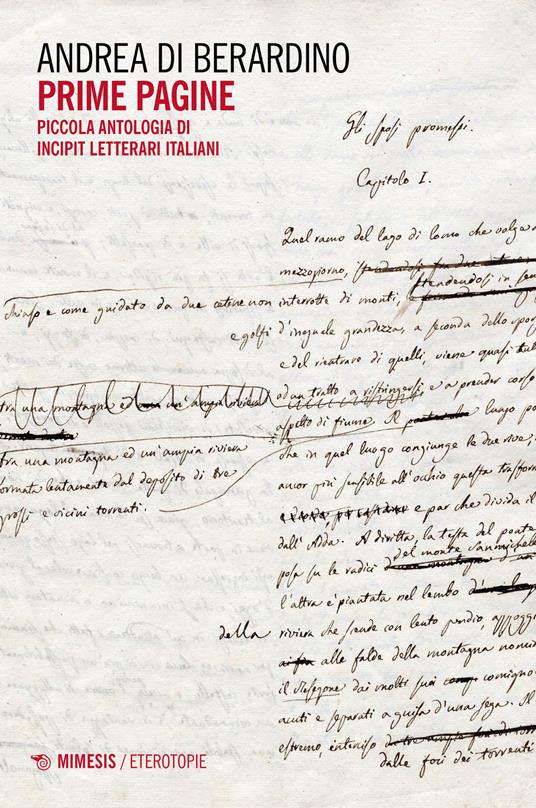 ANDREA DI BERARDINO
PRIME PAGINE
PICCOLA ANTOLOGIA DI
INCIPIT LETTERARI ITALIANI
Gli sposi promessi.
Capitolo I.
Quel ramo del lago di Como che volge a
mezzogiorno,
stendendosi in
chiuso e come guidato da due catene non interrotte di monti,
e golfi d'ineguale grandezza, a seconda dello spor
e del rientrare di quelli, viene quasi tut
ad un tratto a ristringersi, e a prender corso
tra una montagna ed un'ampia riviera
aspetto di fiume. Il luogo po
che in quel luogo congiunge le due rive,
tra una montagna ed un'ampia riviera
ancor più sensibile all'occhio questa trasform
formata lentamente dal deposito di tre
e par che divida il
grossi e vicini torrenti.
dall' Adda. A diritta, la testa del ponte
del monte Sanmichele
posa su le radici
l'altra è piantata nel lembo
della riviera che scende con lento pendio, appoggi
alle falde della montagna nomi
il Resegone dai molti suoi comigno
acuti e separati a guisa d'una sega. Il
estremo, interciso
dalle foci dei torrenti
MIMESIS / ETEROTOPIE